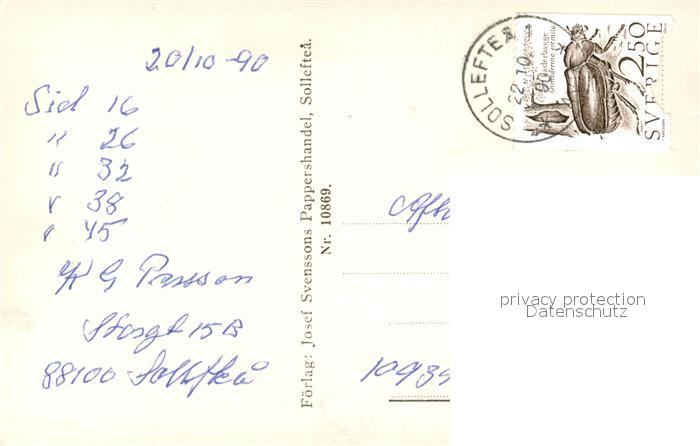 20/10-90
Sid 16
" 26
" 32
" 38
" 45
K G Persson
Storgt 15B
88100 Sollefteå
Förlag: Josef Svenssons Pappershandel, Sollefteå.
Nr. 10869.
SOLLEFTEÅ
22.10
90
Läderbagge
Osmoderma eremita
2.50
SVERIGE
Afth
privacy protection
Datenschutz
1093